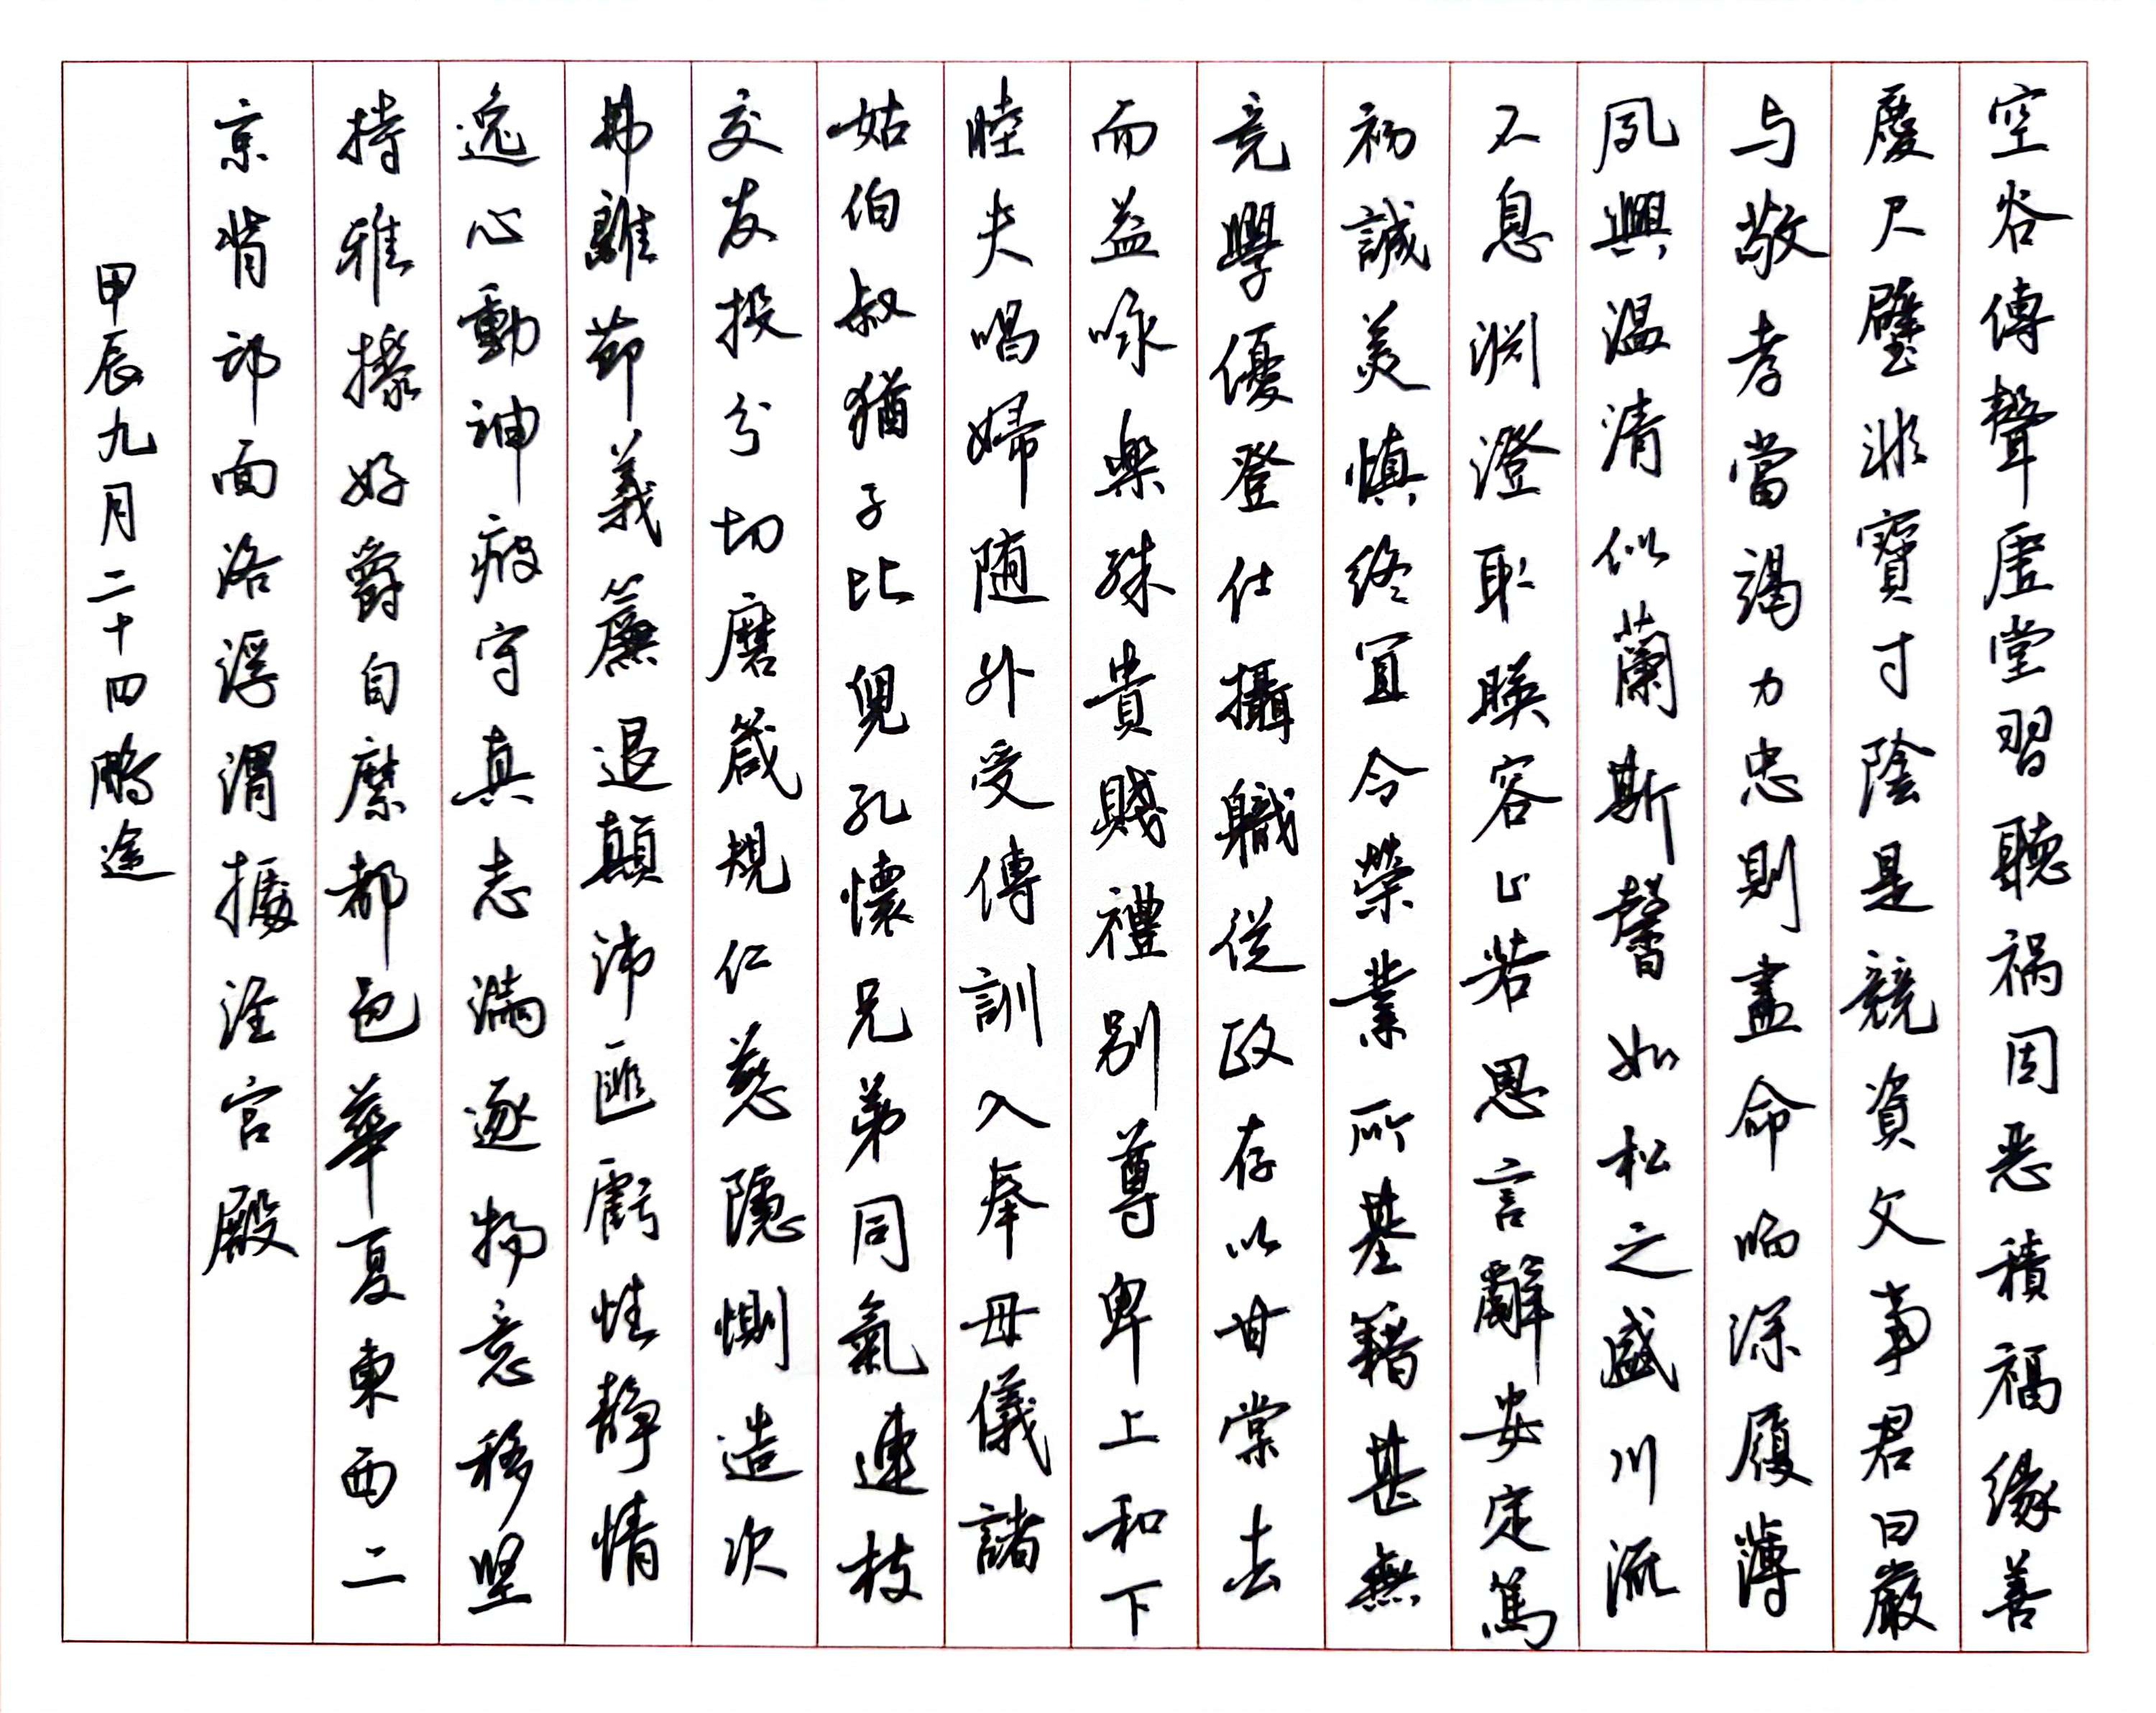 空谷傳聲虛堂習聽祸因恶積福緣善
慶尺璧非寶寸陰是競資父事君曰嚴
与敬孝當竭力忠則盡命临深履薄
夙興温清似蘭斯馨如松之盛川流
不息渊澄取暎容止若思言辭安定篤
初誠美慎終宜令榮業所基籍甚無
竟學優登仕攝職從政存以甘棠去
而益咏樂殊貴賤禮别尊卑上和下
睦夫唱婦随外受傅訓入奉母儀諸
姑伯叔猶子比兒孔懷兄弟同氣連枝
交友投分切磨箴規仁慈隱惻造次
弗離節義廉退顛沛匪虧性静情
逸心動神疲守真志滿逐物意移坚
持雅操好爵自縻都邑華夏東西二
京背邙面洛浮渭據泾宫殿
甲辰九月二十四鵬途